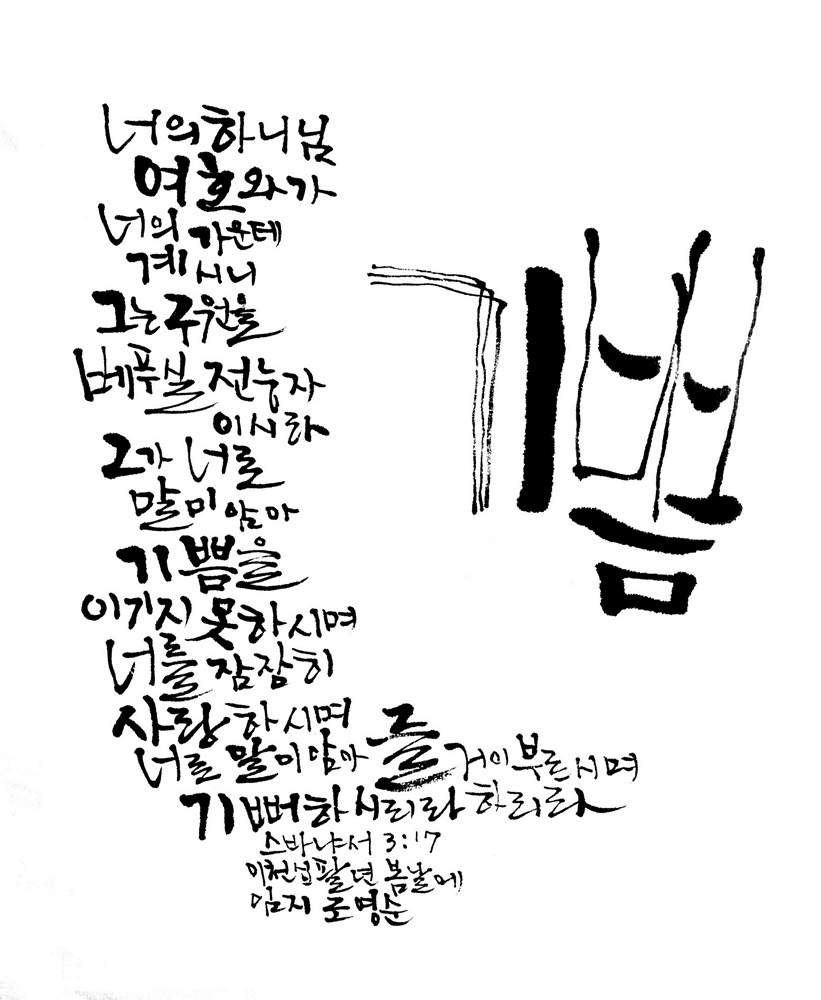 너의 하나님
여호와가
너의 가운데
계시니
그는 구원을
베푸실 전능자
이시라
그가 너로
말미암아
기쁨을
이기지 못하시며
너를 잠잠히
사랑하시며
너로 말미암아 즐거이 부르시며
기뻐하시리라 하리라
스바냐서 3:17
이천십팔년 봄날에
임지 조영순
기쁨